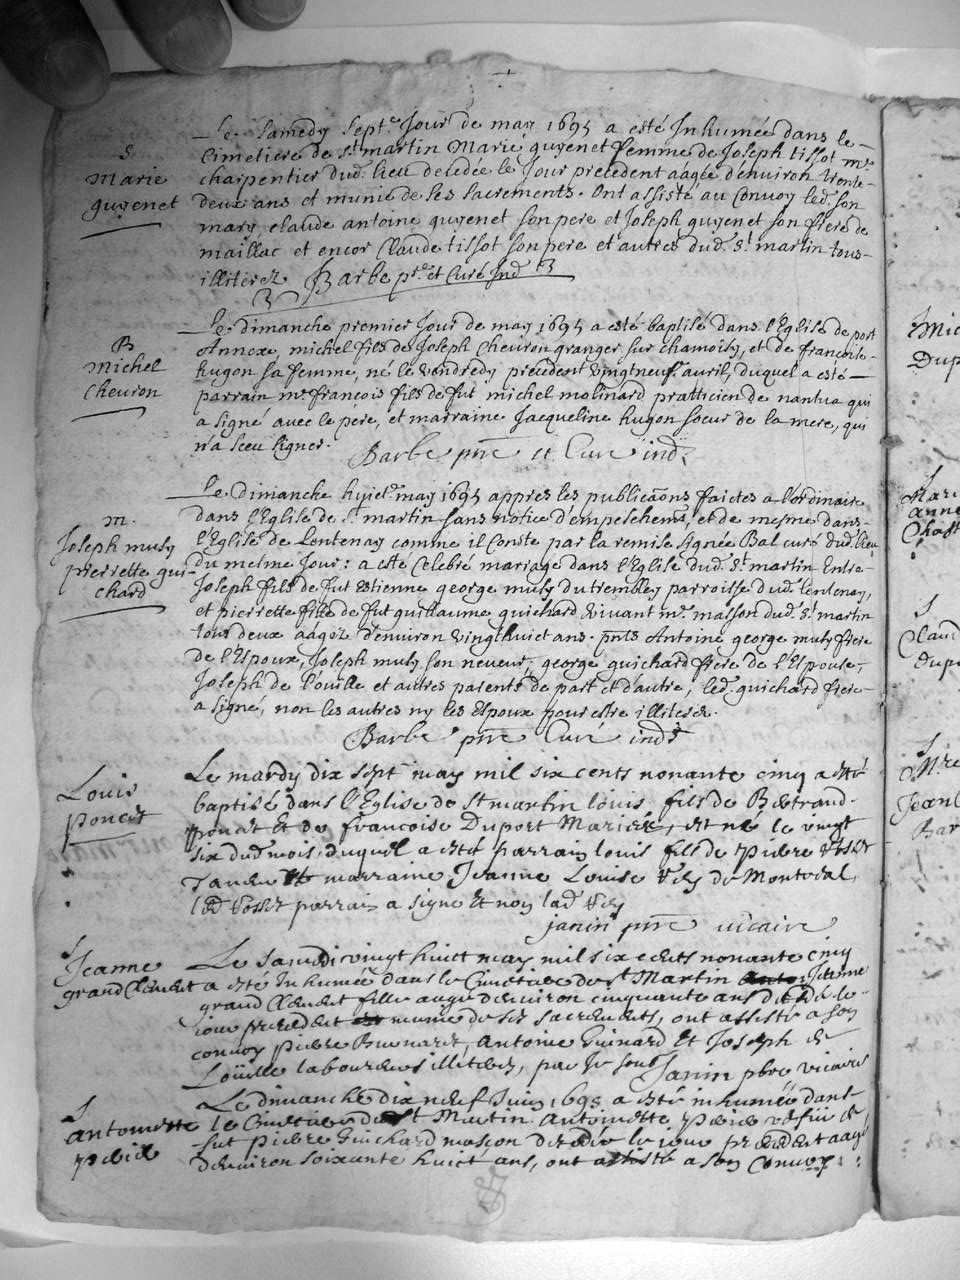 +
S
Marie
guyenet
Le Samedy septe. Jour de may 1695 a esté Inhumée dans le
Cimetiere de St. martin Marie guyenet femme de Joseph tissot me.
charpentier dud. lieu decedée le Jour precedent aagée d'environ trente
deux ans et munie de ses sacrements. Ont assisté au Convoy led. son
mary, claude antoine guyenet son pere et Joseph guyenet son frere de
maillac et encor Claude tissot son pere et autres dud. St. martin tous
illiterez Barbe pre. et Curé Ind
B
Michel
Chevron
Le dimanche premier Jour de may 1695 a esté baptisé dans l'Eglise de port
Annexe, michel fils de Joseph Chevron granger sur chamoisy, et de françoise
hugon sa femme, né le vendredy precedent vingtneuf. avril, duquel a esté
parrain mr. françois fils de fut michel molinard pratticien de nantua qui
a signé avec le pere, et marraine Jacqueline hugon soeur de la mere, qui
n'a sceu signer.
Barbe pre et Curé ind
m.
Joseph musy
pierrette gui-
chard
Le dimanche huicte. may 1695 appres les publicaons faictes a l'ordinaire
dans l'Eglise de St. martin sans notice d'empeschemt, et de mesme dans
l'Eglise de Lentenay comme il Conste par la remise signée Bal curé dud. lieu
du mesme Jour: a esté Celebré mariage dans l'Eglise dud. St. martin Entre
Joseph fils de fut Estienne george musy du trembley parroisse dud. lentenay,
et pierrette fille de fut guillaume guichard vivant me. masson dud. St. martin
tous deux aagez d'environ vingthuict ans. pnts Antoine george musy frere
de l'Espoux, Joseph musy son neveur, george guichard frere de l'Espouse,
Joseph de l'ouille et autres parents de part et d'autre, led. guichard frere
a signe, non les autres ny les Espoux pour estre illiterez.
Barbe pre Curé ind
Louis
poncet
Le mardy dix sept may mil six cents nonante cinq a esté
baptisé dans l'Eglise de St martin louis fils de Bertrand
poncet Et de francoise Duport Mariés, est né le vingt
six dud mois, duquel a esté parrain louis fils de pierre
marraine Jeanne Louise de Montreal
parrain a signe Et non lad
janin pre vicaire
Jeanne
grand Clement
Le samedi vingt huict may mil six cents nonante cinq
a esté Inhumée dans le Cimetiere de St Martin Jeanne
grand Clement fille aagé denviron cinquante ans decedé le
jour precedent munie de ses sacrements, ont assisté a son
convoy pierre Antoine Guinard Et Joseph de
Loüille laboureurs illiterez, par Je soub Janin pbre vicaire
S
antoinette
Le dimanche dix neuf Juin 1695 a esté inhumée dans
le Cimetiere de St Martin Antoinette
fut pierre Guichard masson decedée le jour precedent aagé
denviron soixante huict ans, ont assisté a son Convoy
Mic
Dup
Mari
anne
Chast
S
Claud
dupo
Jean
Bar